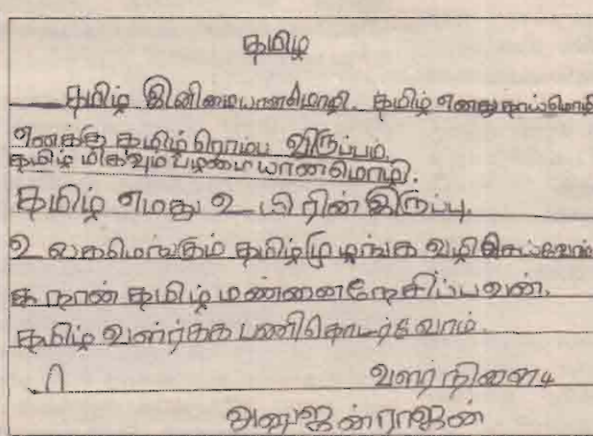 தமிழ்
தமிழ் இனிமையானமொழி. தமிழ் எனதுதாய்மொழி
எனக்கு தமிழ் ரொம்ப விருப்பம்.
தமிழ் மிகவும் பழமையானமொழி.
தமிழ் எமது உயிரின் இருப்பு.
உலகமெங்கும் தமிழ்முழங்க வழி செய்வோம்
க நான் தமிழ் மண்ணை நேசிப்பவன்.
தமிழ் வளர்க்க பணிதொடர்வோம்.
வளர்நிலை 4
அனுஜன்ராஜன்